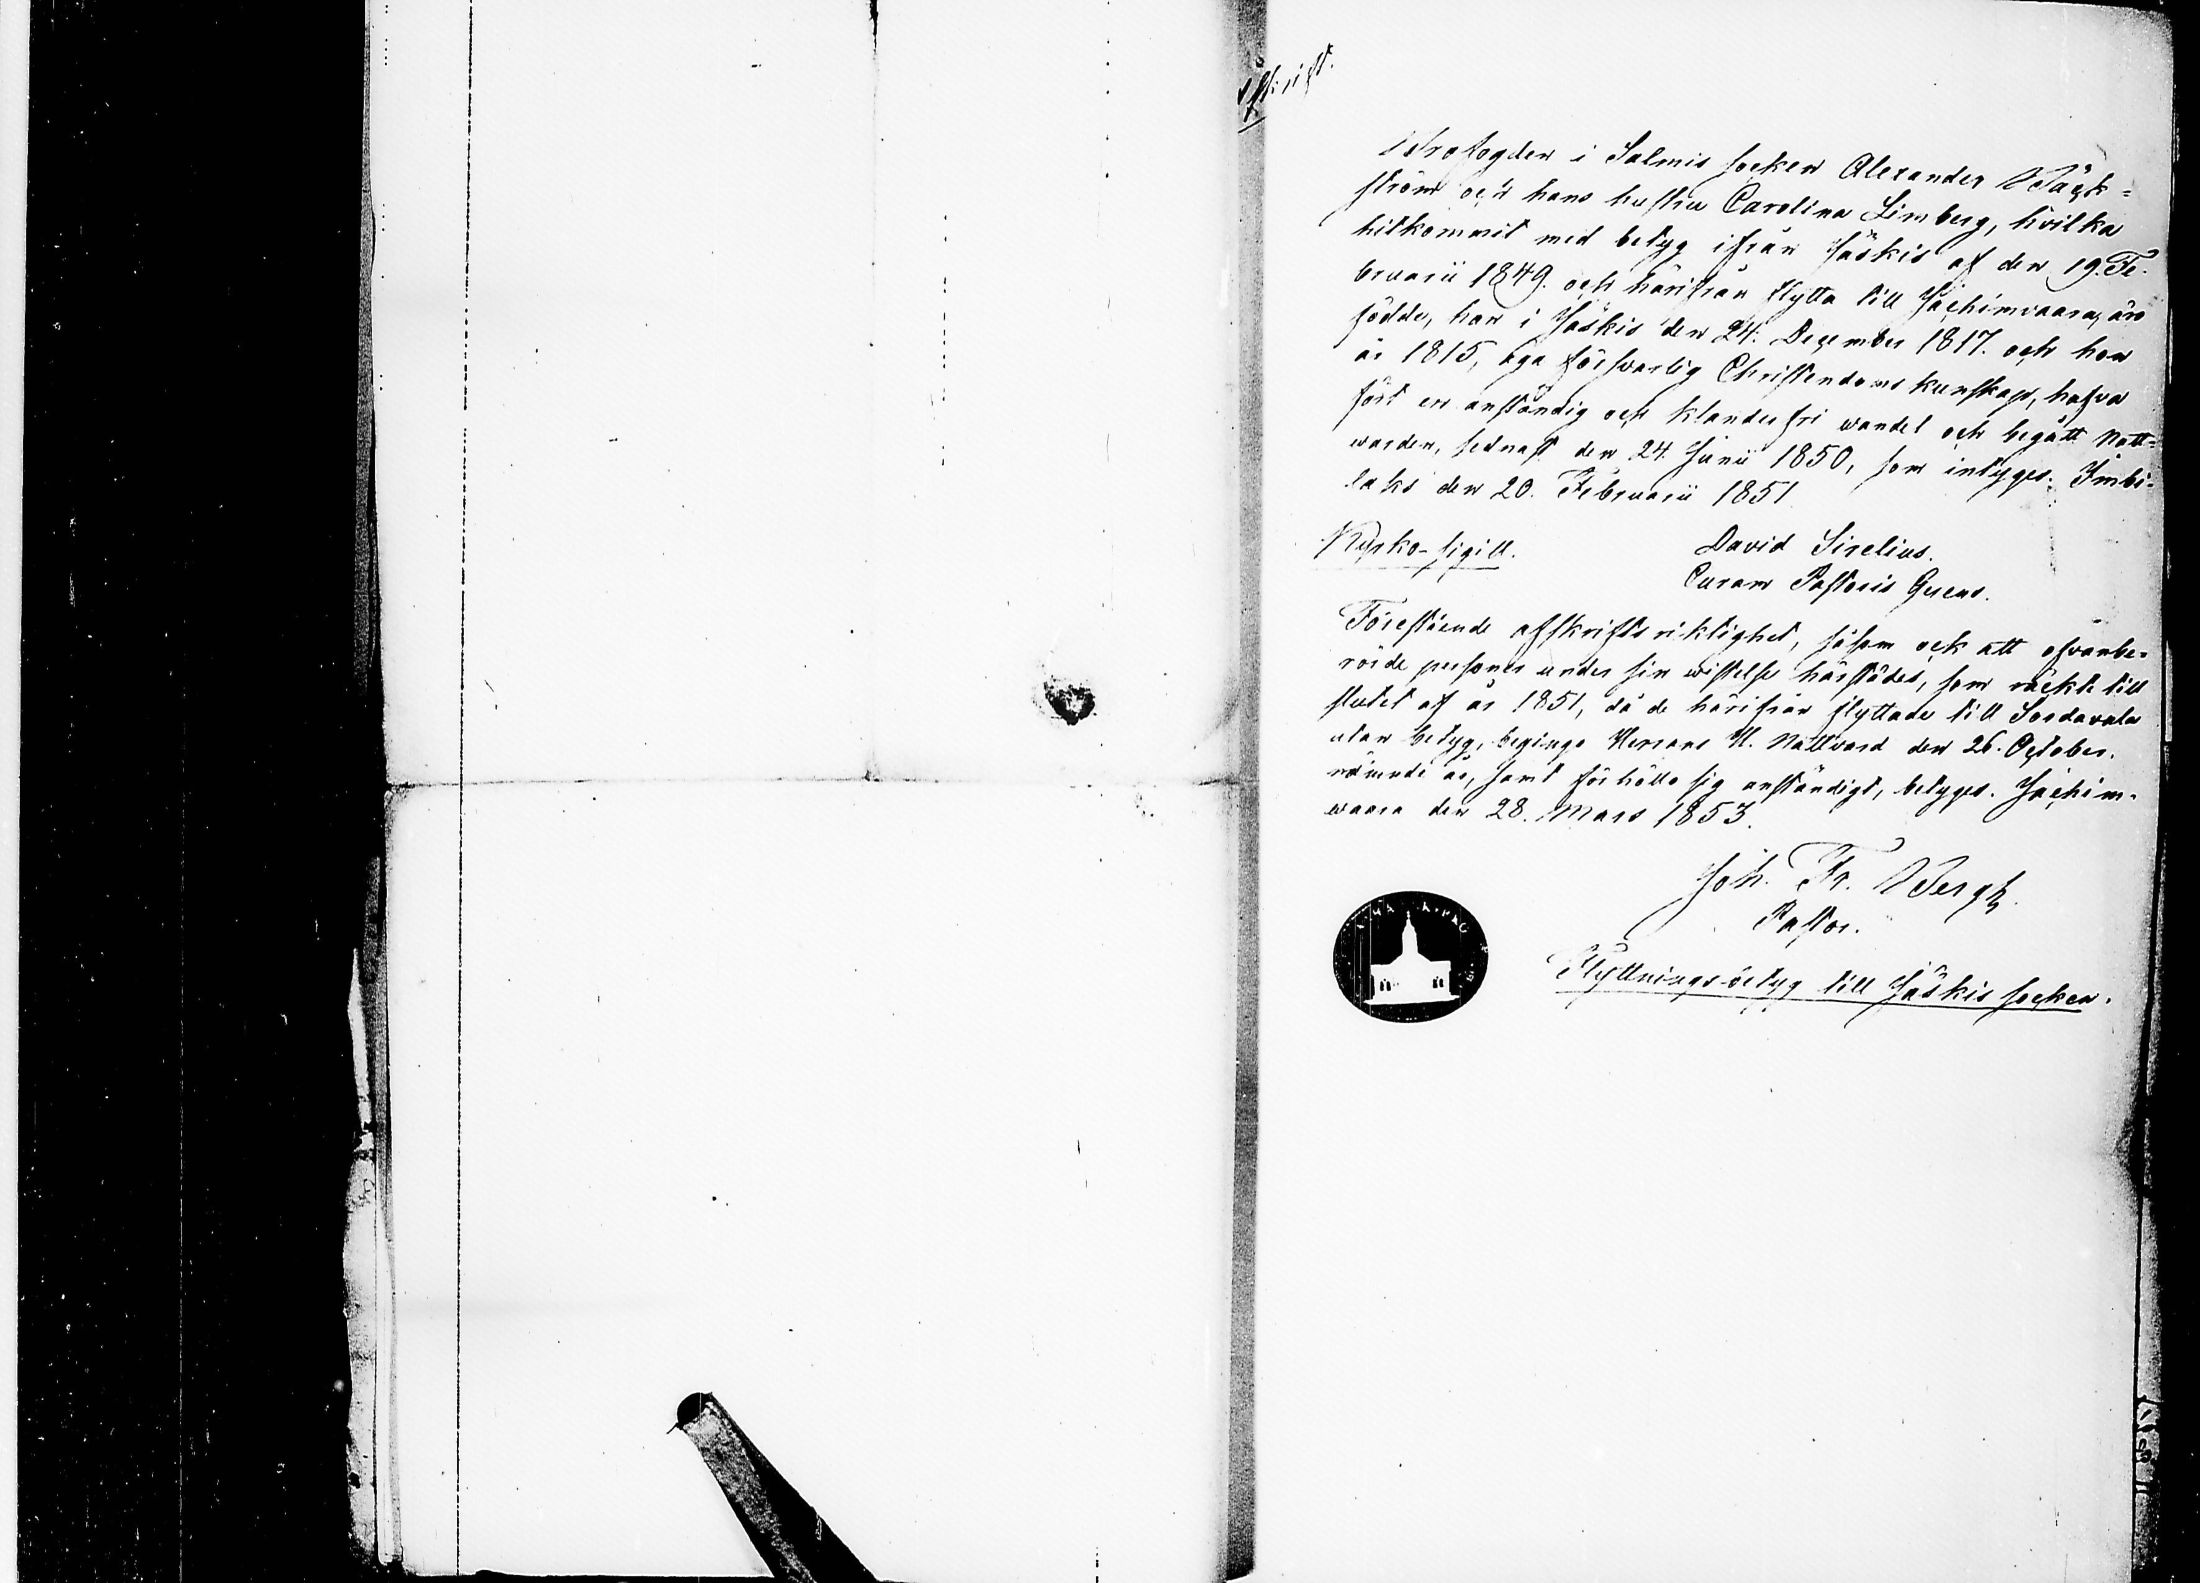 Afskrift.
Brofogden i Salmis socken Alexander Bäck=
ström och hans hustru Carolina Limberg, hvilka
hitkommit med betyg ifrån Jäskis af den 19. Fe-
bruarii 1849. och härifrån flytta till Jächimvaara, äro
födde, han i Jäskis den 24. December 1817. och hon
år 1815, äga försvarlig Christendoms kunskap, hafva
fört en anständig och klanderfri wandel och begått Natt-
warden, sednast den 24. Junii 1850, som intyges. Imbi-
laks den 20. Februarii 1851
Kyrko-sigill.
David Sirelius.
Curam Pastoris Gerens.
Förestående afskrifts riktighet, såsom ock att ofvanbe-
rörde personer under sin wistelse härstädes, som räckte till
slutet af år 1851, då de härifrån flyttade till Sordavala
utan betyg, begingo Herrans H. Nattvard den 26. October.
nämnde år, samt förhöllo sig anständigt, betyges. Jächim-
waara den 28. Mars 1853.
Joh. Fr. Bergh
Pastor.
Flyttningsbetyg till Jäskis socken.